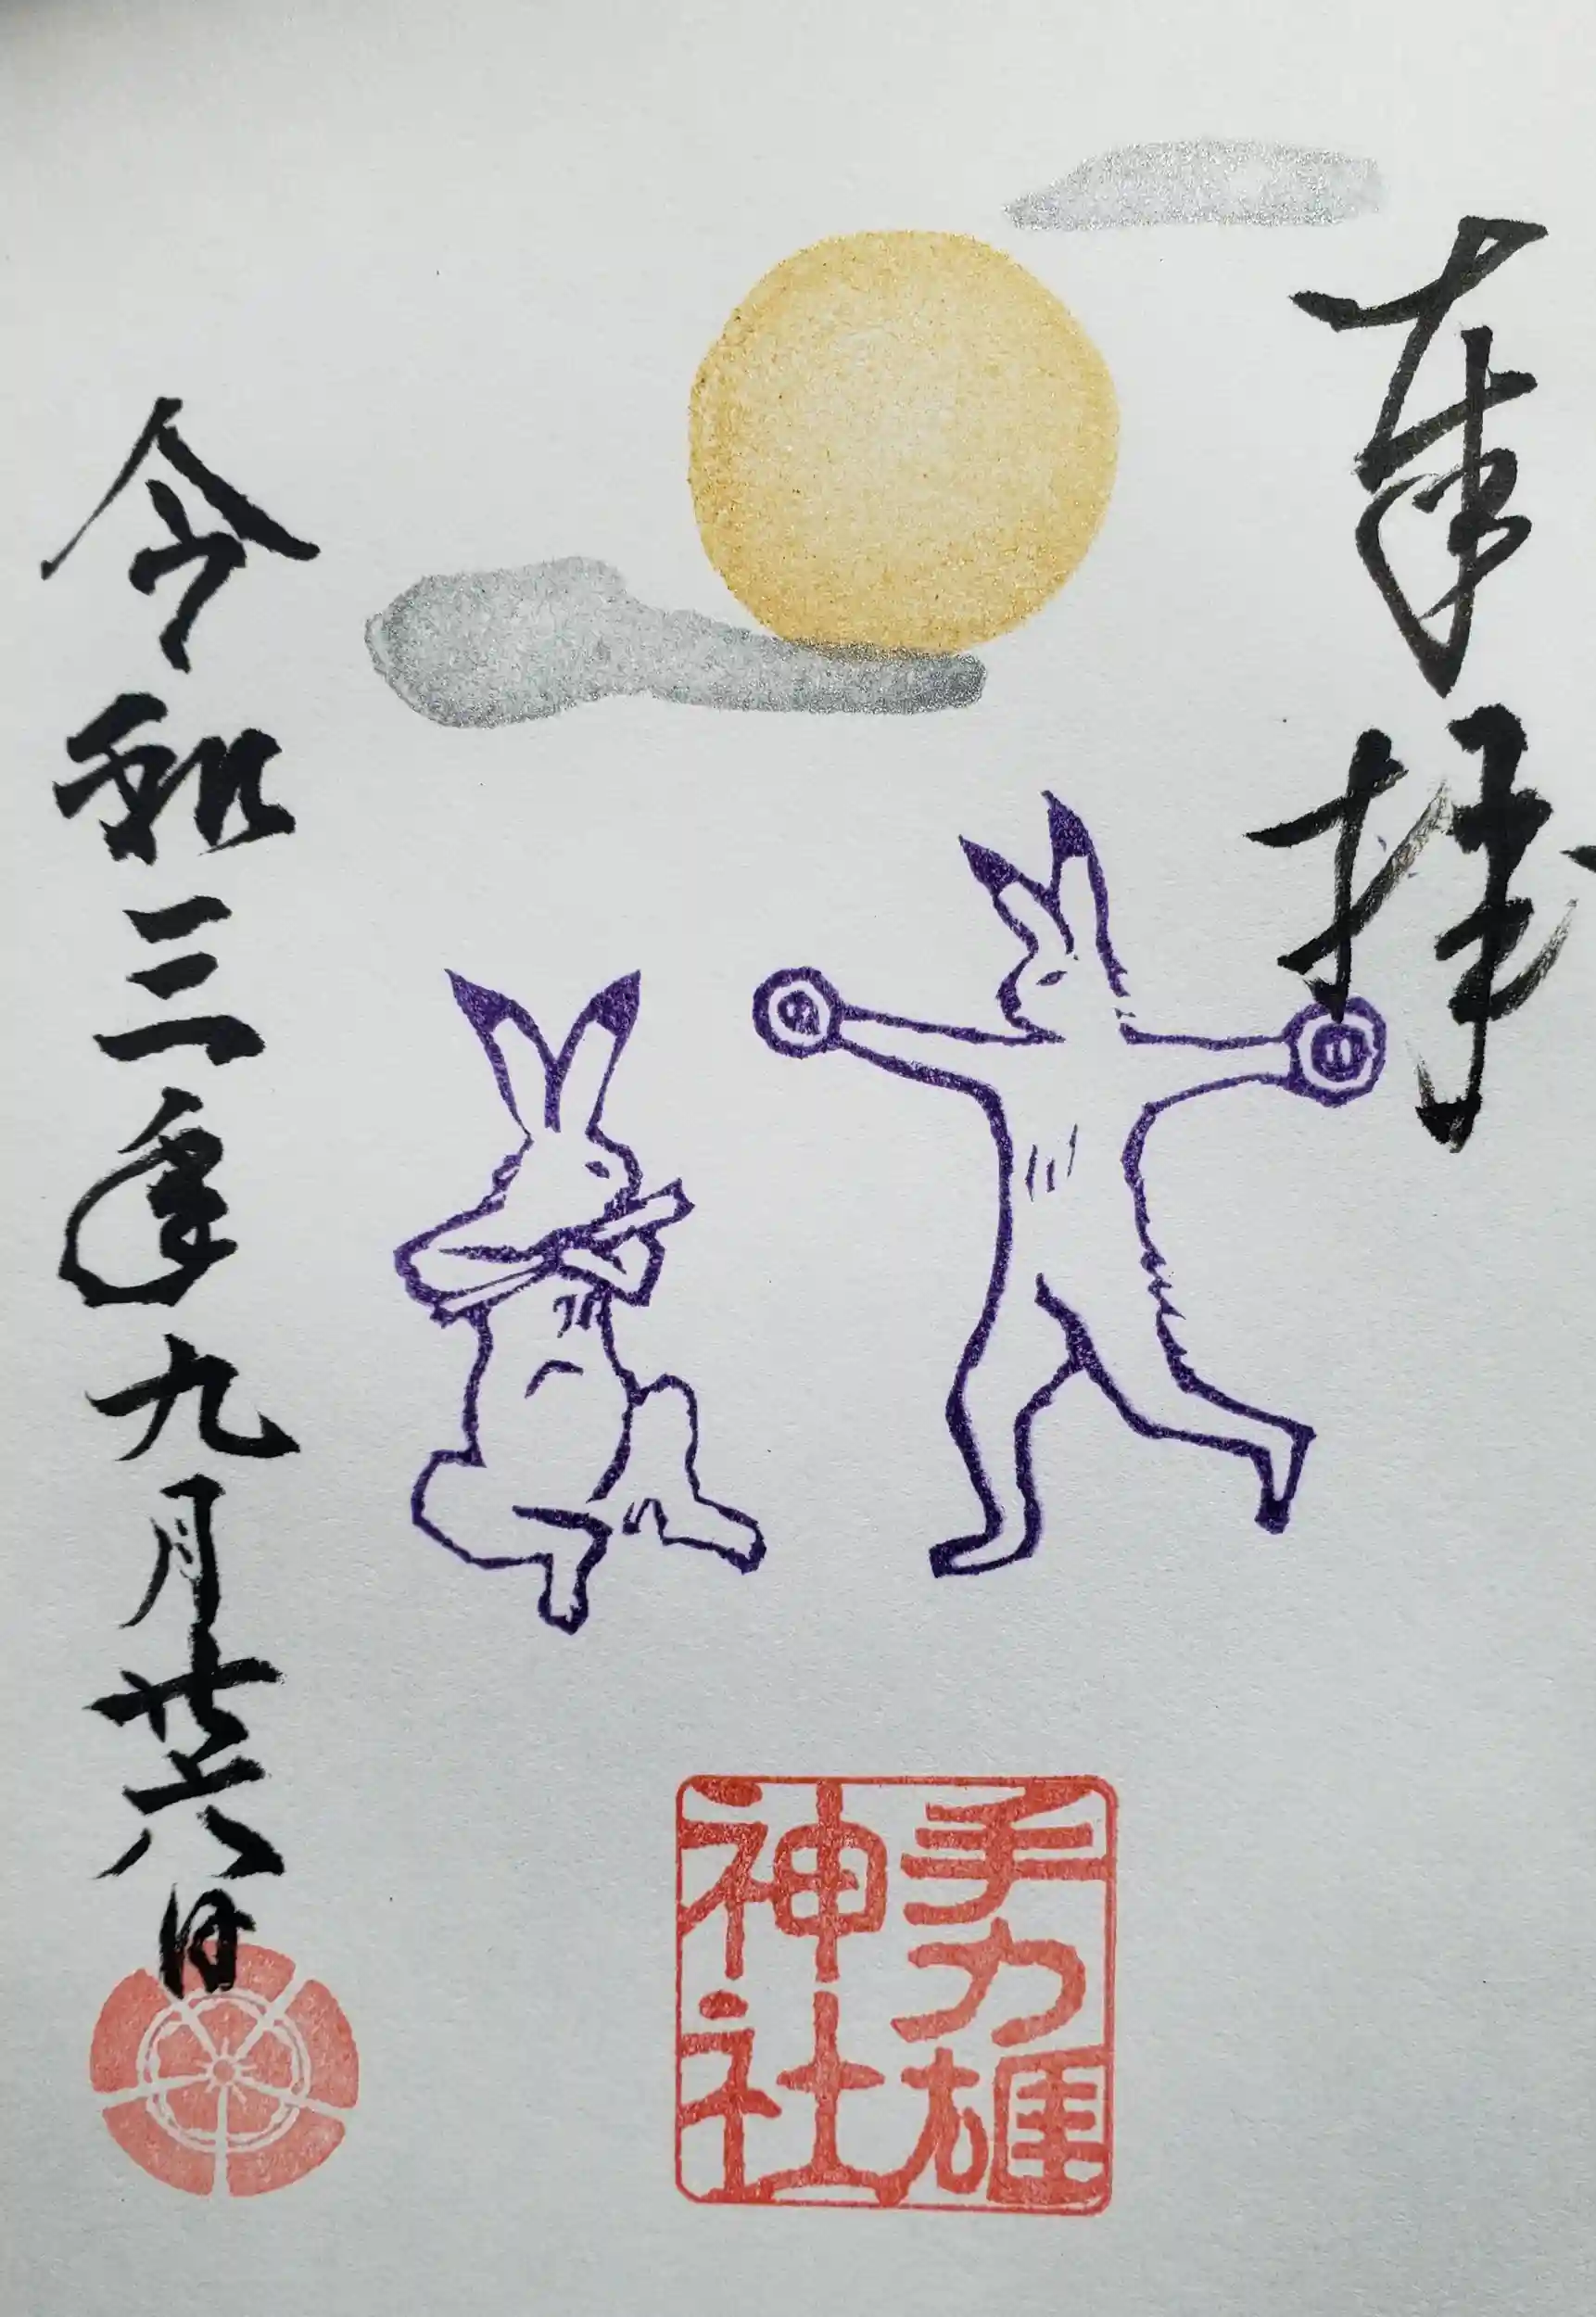 奉拝
手力雄
神社
令和三年九月廿六日